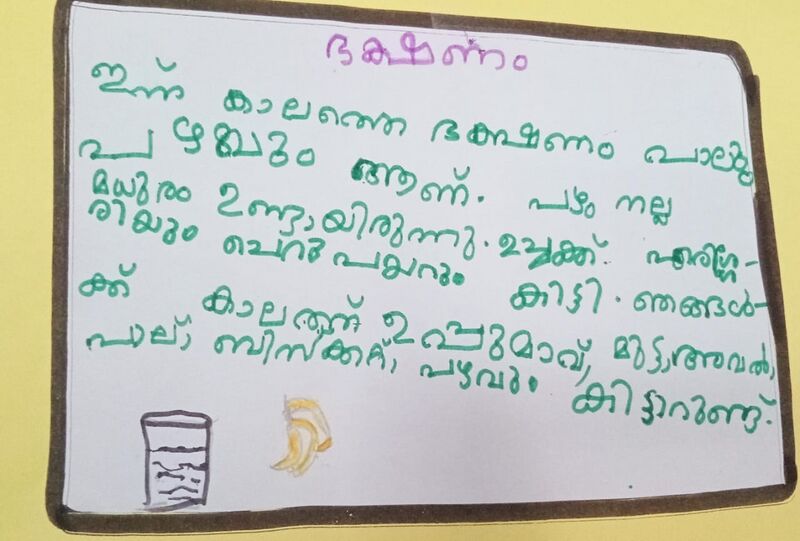 ഭക്ഷണം
ഇന്ന് കാലത്തെ ഭക്ഷണം പാലും
പഴവും ആണ്. പഴം നല്ല
മധുരം ഉണ്ടായിരുന്നു. ഉച്ചക്ക്
രിയും ചെറുപയറും കിട്ടി. ഞങ്ങൾ-
ക്ക് കാലത്ത് ഉപ്പുമാവ്, മുട്ട, അവൽ,
പാല്, ബിസ്ക്കറ്റ്, പഴവും കിട്ടാറുണ്ട്.